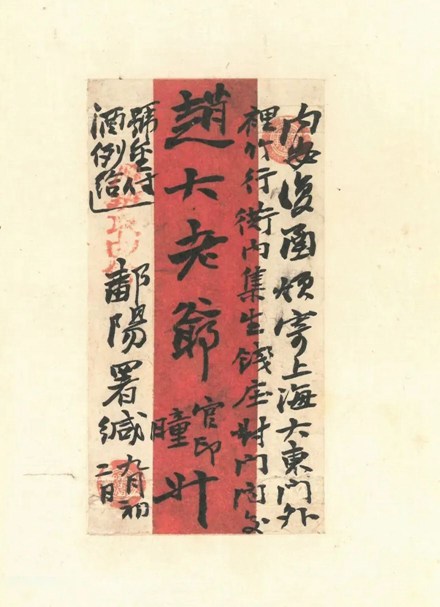 内安復函煩寄上海大東門外
裡竹行街内集生錢庄對門面交
趙大老爺
官印
瞳
升
號付
酒例給
鄱陽署緘
九月初
二日